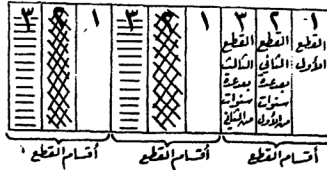 ٣ ٢ ١ ٣ ٢ ١ ٣ ٢ ١
القطع الأول
القطع الثاني بعد عدة سنوات من الأول
القطع الثالث بعد عدة سنوات من الثاني
أقسام القطع أقسام القطع أقسام القطع